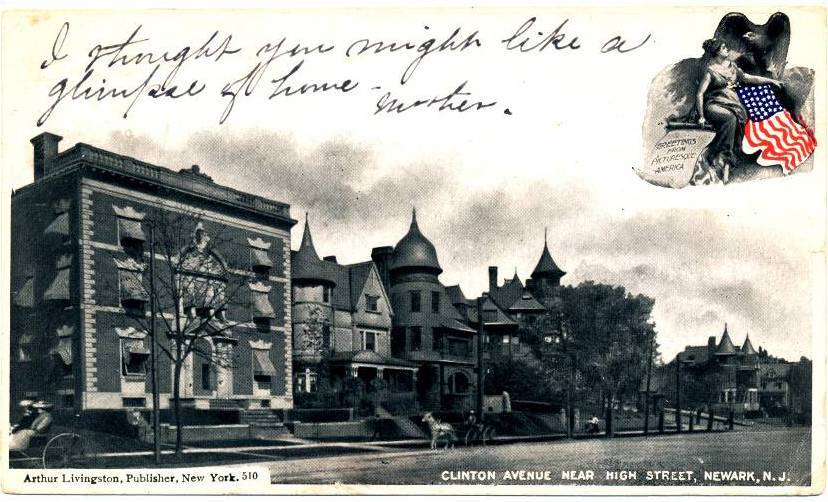 I thought you might like a
glimpse of home - Mother.
GREETINGS
FROM
PICTURESQUE
AMERICA
Arthur Livingston, Publisher, New York. 510
CLINTON AVENUE NEAR HIGH STREET, NEWARK, N.J.